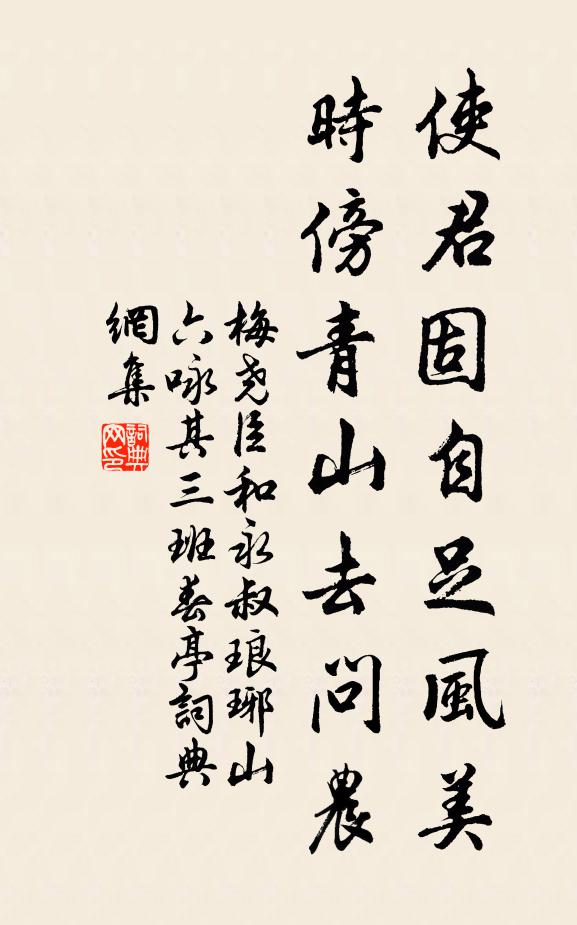 使君固自足風美
時傍青山去問農
梅堯臣和永叔琅琊山
六咏其三班春亭詞典
網集
詞典
网印